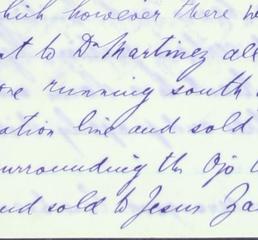 which however there
nt to Dn Martinez all
one running south
ation line and sold
urrounding the Ojo
and sold to Jesus Za